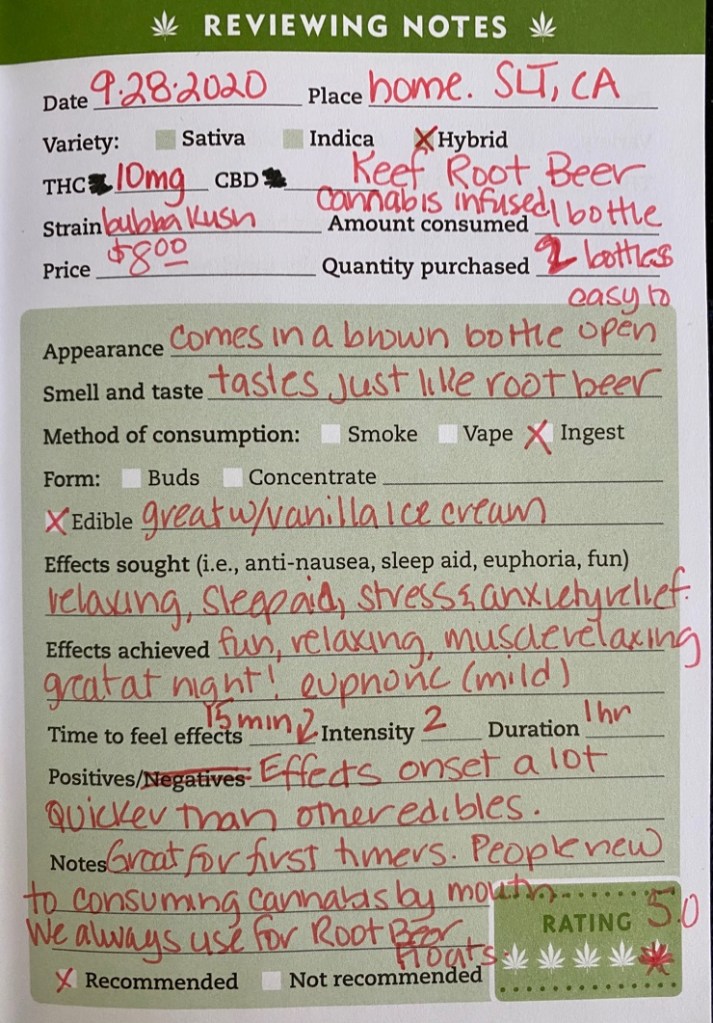 REVIEWING NOTES
Date 9.28.2020 Place home. SLT, CA
Variety: Sativa Indica Hybrid
THC 10mg CBD Keef Root Beer
Cannabis infused
Strain bubba Kush Amount consumed 1 bottle
Price $8.00 Quantity purchased 2 bottles
easy to
Appearance comes in a brown bottle open
Smell and taste tastes just like root beer
Method of consumption: Smoke Vape X Ingest
Form: Buds Concentrate
X Edible great w/vanilla Ice cream
Effects sought (i.e., anti-nausea, sleep aid, euphoria, fun)
relaxing, sleep aid, stress & anxiety relief.
Effects achieved fun, relaxing, muscle relaxing
great at night! euphoric (mild)
Time to feel effects 15 min Intensity 2 Duration 1hr
Positives/Negatives Effects onset a lot
quicker than other edibles.
Notes Great for first timers. People new
to consuming cannabis by mouth
We always use for Root Beer
Floats.
RATING 5.0
X Recommended Not recommended